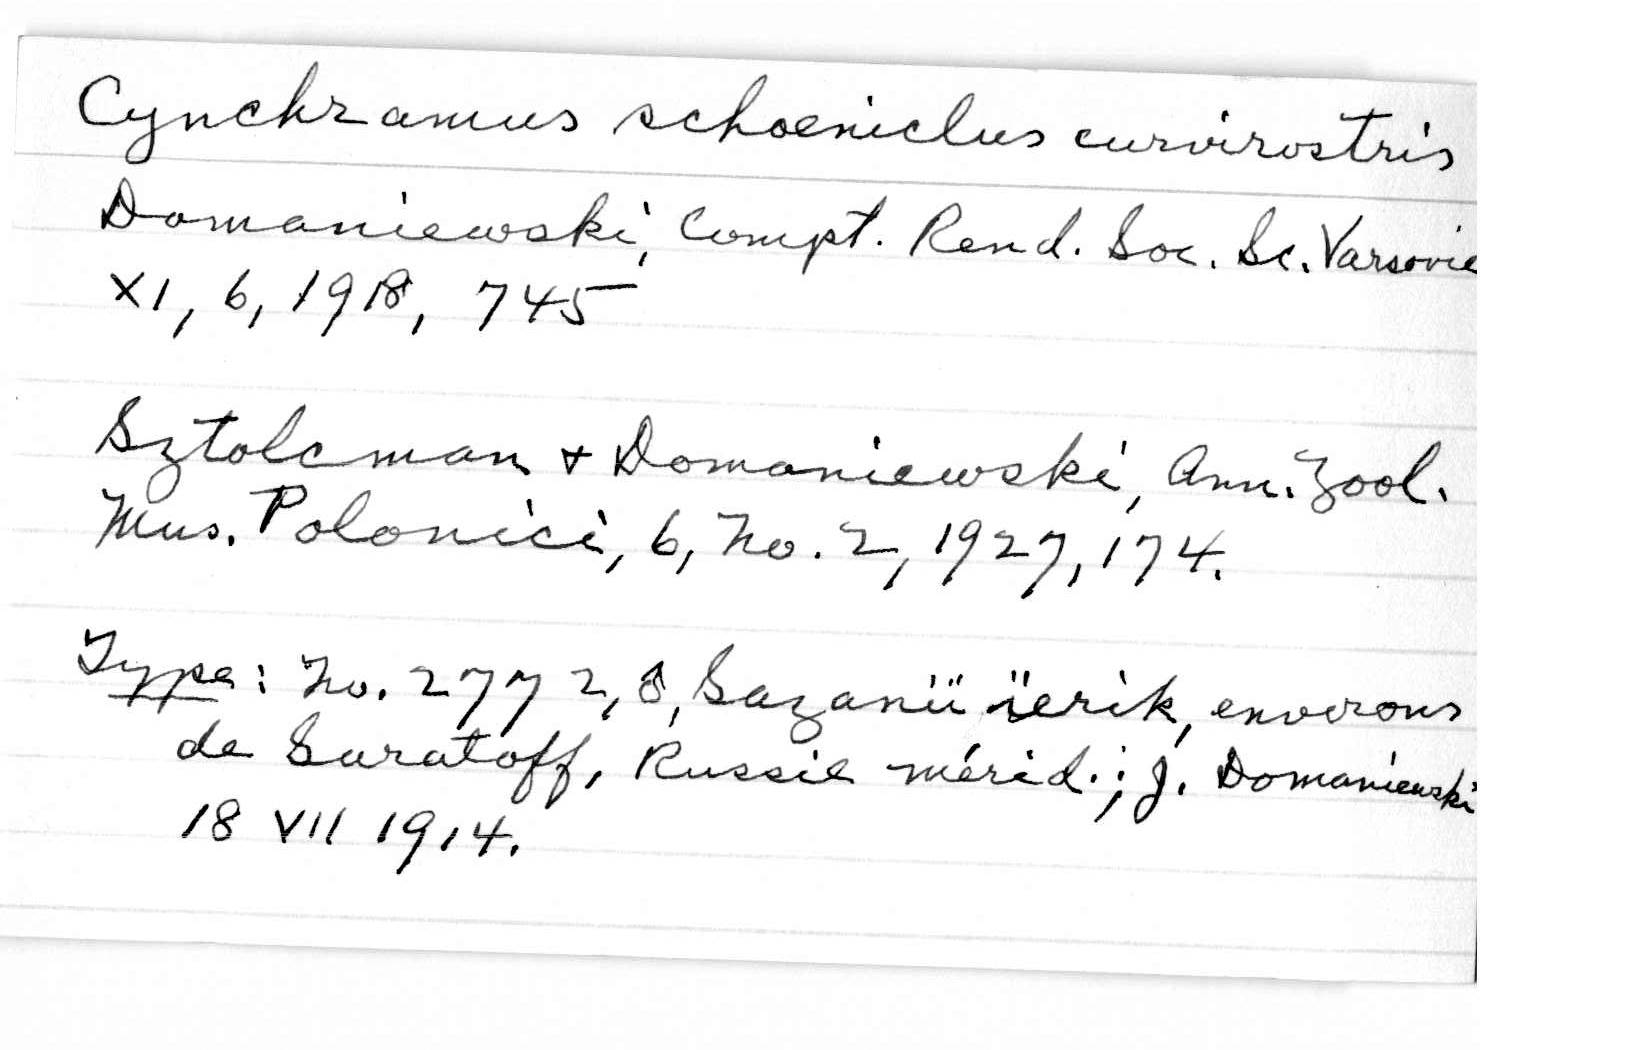 Cynchramus schoeniclus curvirostris
Domaniewski, Compt. Rend. Soc. Sc. Varsovie
XI, 6, 1918, 745
Sztolcman + Domaniewski, Ann. Zool.
Mus. Polonici, 6, No. 2, 1927, 174.
Type: No. 2772, ♂, Sazaniï ïerik, environs
de Saratoff, Russie mérid.; J. Domaniewski
18 VII 1914.